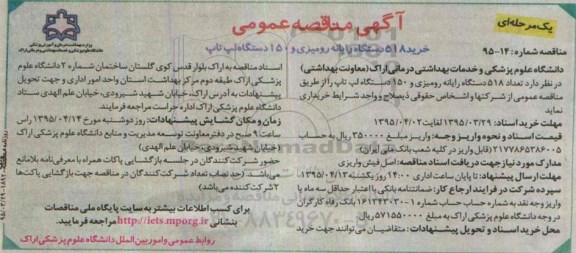 آگهی مناقصه عمومی
یک مرحله‌ای
خرید ۵۱۸ دستگاه رایانه رومیزی و ۱۵۰ دستگاه لپ تاپ
وزارت بهداشت، درمان و آموزش پزشکی
مناقصه شماره: ۱۴-۹۵
دانشگاه علوم پزشکی و خدمات بهداشتی درمانی اراک (معاونت بهداشتی)
در نظر دارد تعداد ۵۱۸ دستگاه رایانه رومیزی و ۱۵۰ دستگاه لپ تاپ را از طریق
مناقصه عمومی از شرکتها و اشخاص حقوقی ذیصلاح و واجد شرایط خریداری
نماید
مهلت خرید اسناد: ۱۳۹۵/۰۳/۲۹ لغایت ۱۳۹۵/۰۴/۰۲
قیمت اسناد و نحوه واریز وجه: واریز مبلغ ۳۵۰۰۰۰ ریال به حساب
۲۱۷۷۸۶۵۳۸۶۰۰۵ (قابل واریز در کلیه شعب بانک ملی ایران)
مدارک مورد نیاز جهت دریافت اسناد مناقصه: اصل فیش واریزی
مهلت ارسال پیشنهاد: تا پایان ساعت اداری ۱۴:۰۰ روز یکشنبه ۱۳۹۵/۰۴/۱۳
سپرده شرکت در فرایند ارجاع کار: ضمانتنامه بانکی با اعتبار حداقل سه ماه یا
واریز وجه نقد به شماره حساب شماره ۱-۱۶۱۳۴۴۳۰۳ بانک رفاه کارگران
در وجه دانشگاه علوم پزشکی اراک به مبلغ ۵۷۱۵۵۰۰۰۰ ریال
محل خرید اسناد و تحویل پیشنهادات: متقاضیان می‌توانند جهت خرید
اسناد مناقصه به اراک: بلوار قدس کوی گلستان ساختمان شماره ۲ دانشگاه علوم
پزشکی اراک طبقه دوم مرکز بهداشت استان واحد امور اداری و جهت تحویل
پیشنهادات به آدرس اراک، خیابان شهید شیرودی، خیابان علم الهدی ستاد
دانشگاه علوم پزشکی اراک اداره حراست مراجعه فرمایند
زمان و مکان گشایش پیشنهادات: روز دوشنبه مورخ ۱۳۹۵/۰۴/۱۴ راس
ساعت ۹ صبح در دفتر معاونت توسعه مدیریت و منابع دانشگاه علوم پزشکی اراک
(خیابان شهید شیرودی، خیابان علم الهدی)
حضور شرکت کنندگان در جلسه بازگشایی پاکات همراه با معرفی‌نامه بلامانع
می‌باشد. (حد نصاب تعداد شرکت کنندگان در مناقصه جهت بازگشایی پاکت‌ها
۲ شرکت کننده می‌باشد)
برای کسب اطلاعات بیشتر به سایت پایگاه ملی مناقصات
بنشانی http://iets.mporg.ir مراجعه فرمایید.
روابط عمومی و امور بین الملل دانشگاه علوم پزشکی اراک